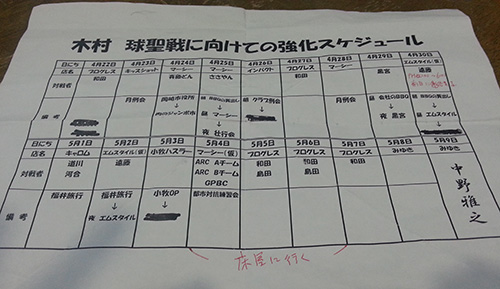 木村 球聖戦に向けての強化スケジュール
日にち 4月22日 4月23日 4月24日 4月25日 4月26日 4月27日 4月28日 4月29日 4月30日
店名 プログレス キャスショット マーシー マーシー インパクト プログレス マーシー エムスタイル(仮)
対戦者 和田 斉藤どん ささやん 和田 黒宮 遠藤
備考 月例会 岡崎市役所 昼 クラブ例会 月例会 昼 会社のBBQ
↓ ↓ ↓ ↓ ↓
夜 壮行会 マーシー 夜 黒宮 エムスタイル
日にち 5月1日 5月2日 5月3日 5月4日 5月5日 5月6日 5月7日 5月8日 5月9日
店名 キャロム エムスタイル(仮) 小牧ハスラー マーシー(仮) プログレス プログレス プログレス みゆき みゆき
対戦者 道川 遠藤 ARC Aチーム 和田 和田 和田 中野雅之
河合 ARC Bチーム 島田 島田
GPBC
備考 福井旅行 福井旅行 小牧OP 都市対抗練習会
↓ ↓
夜 エムスタイル
床屋に行く